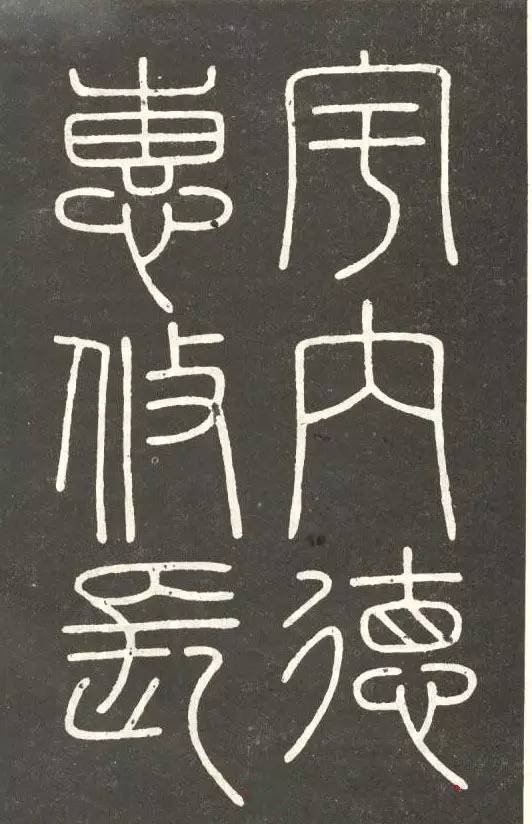 宇内德
惠攸長